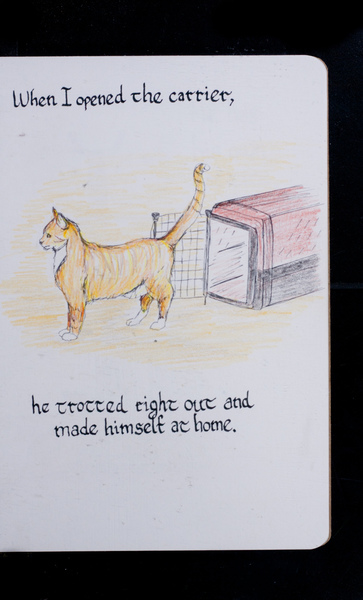 When I opened the carrier,
he trotted right out and
made himself at home.